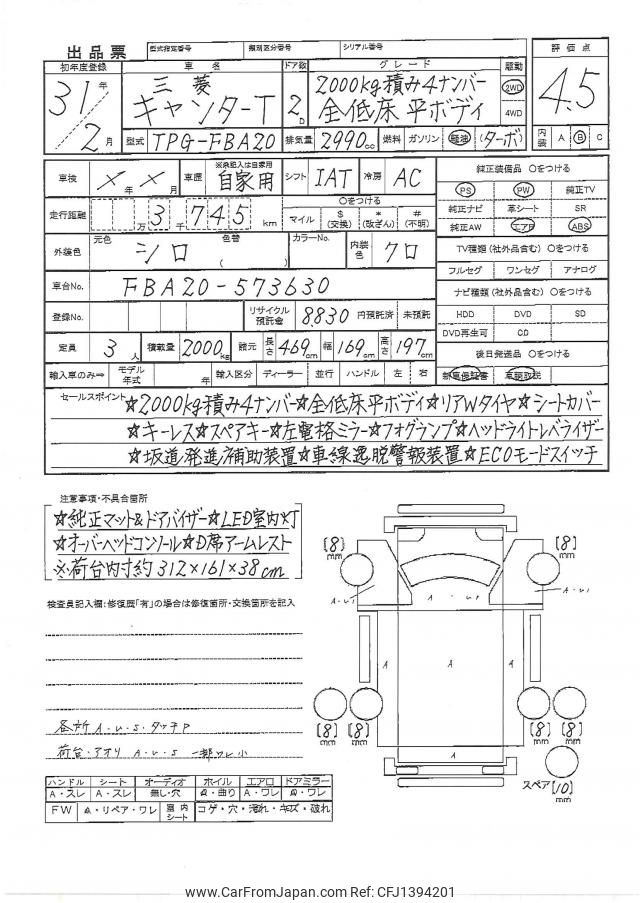 出品票 型式指定番号 類別区分番号 シリアル番号
初年度登録 車名 ドア数 グレード 駆動 評価点
31年 三菱 2D 2000kg積み4ナンバー 2WD 4.5
2月 キャンターT 全低床 平ボディ 4WD
型式 TPG-FBA20 排気量 2990cc 燃料 ガソリン 軽油 (ターボ) 内装 A B C
車検 X年 X月 車歴 ※未記入は自家用 自家用 シフト IAT 冷房 AC 純正装備品 ○をつける
PS PW 純正TV
走行距離 万 3千 745 km ○をつける マイル $(交換) *(改ざん) #(不明) 純正ナビ 革シート SR
純正AW エアB ABS
外装色 元色 シロ 色替 カラーNo. 内装色 クロ TV種類(社外品含む) ○をつける
フルセグ ワンセグ アナログ
車台No. FBA20-573630 ナビ種類(社外品含む) ○をつける
登録No. リサイクル預託金 8,830 円預託済 未預託 HDD DVD SD
DVD再生可 CD
定員 3人 積載量 2000kg 諸元 長さ 469cm 幅 169cm 高さ 197cm 後日発送品 ○をつける
輸入車のみ⇒ モデル年式 年 輸入区分 ディーラー 並行 ハンドル 左 右 新車保証書 車輌取説
セールスポイント ☆2000kg積み4ナンバー☆全低床平ボディ☆リアWタイヤ☆シートカバー
☆キーレス☆スペアキー☆左電格ミラー☆フォグランプ☆ヘッドライトレベライザー
☆坂道発進補助装置☆車線逸脱警報装置☆ECOモードスイッチ
注意事項・不具合箇所
☆純正マット&ドアバイザー☆LED室内灯
☆オーバーヘッドコンソール☆D席アームレスト
※荷台内寸約312×161×38cm
検査員記入欄:修復歴「有」の場合は修復箇所・交換箇所を記入
[8]mm [8]mm
A・U1 A・U1
A A A
各所 A・U・S・タッチP
荷台・アオリ A・U・S 一部ワレ小
[8]mm [8]mm [8]mm [8]mm
A
スペア [10]mm
ハンドル シート オーディオ ホイル エアロ ドアミラー
A・スレ A・スレ 無し・穴 A・曲り A・ワレ A・ワレ
FW A・リペア・ワレ 室内シート コゲ・穴・汚れ・キズ・破れ
www.CarFromJapan.com Ref: CFJ1394201